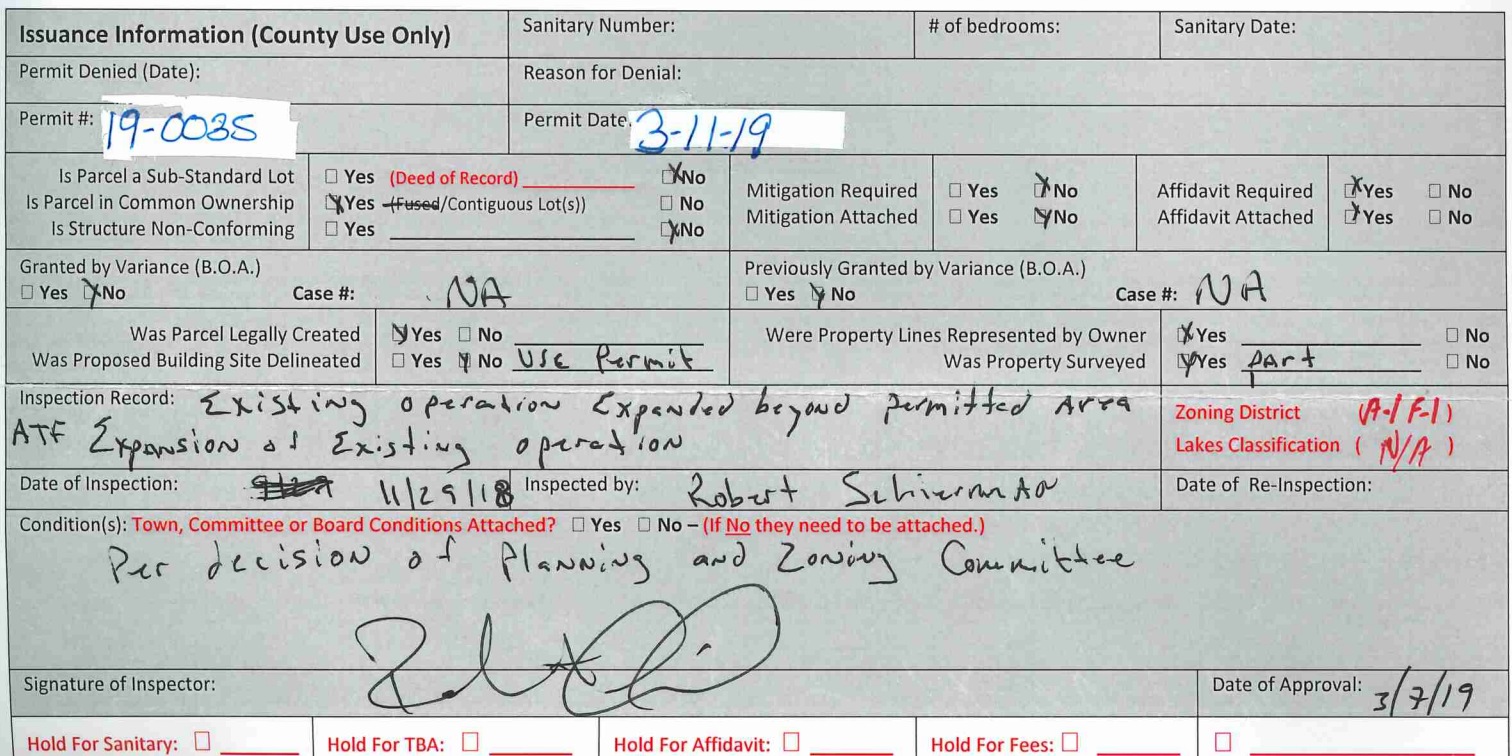 Issuance Information (County Use Only) Sanitary Number: # of bedrooms: Sanitary Date:
Permit Denied (Date): Reason for Denial:
Permit #: 19-0035 Permit Date: 3-11-19
Is Parcel a Sub-Standard Lot □ Yes (Deed of Record) ☒ No
Is Parcel in Common Ownership ☒ Yes (Fused/Contiguous Lot(s)) □ No
Is Structure Non-Conforming □ Yes ☒ No
Mitigation Required □ Yes ☒ No
Mitigation Attached □ Yes ☒ No
Affidavit Required ☒ Yes □ No
Affidavit Attached ☒ Yes □ No
Granted by Variance (B.O.A.)
□ Yes ☒ No Case #: NA
Previously Granted by Variance (B.O.A.)
□ Yes ☒ No Case #: NA
Was Parcel Legally Created ☒ Yes □ No
Was Proposed Building Site Delineated □ Yes ☒ No Use Permit
Were Property Lines Represented by Owner ☒ Yes □ No
Was Property Surveyed ☒ Yes Part □ No
Inspection Record: Existing operation Expanded beyond permitted Area
ATF Expansion of Existing operation
Zoning District (A-1 F-1)
Lakes Classification ( N/A )
Date of Inspection: 11/29/18 Inspected by: Robert Schierman Date of Re-Inspection:
Condition(s): Town, Committee or Board Conditions Attached? □ Yes □ No – (If No they need to be attached.)
Per decision of Planning and Zoning Committee
Signature of Inspector: Date of Approval: 3/7/19
Hold For Sanitary: □ Hold For TBA: □ Hold For Affidavit: □ Hold For Fees: □ □